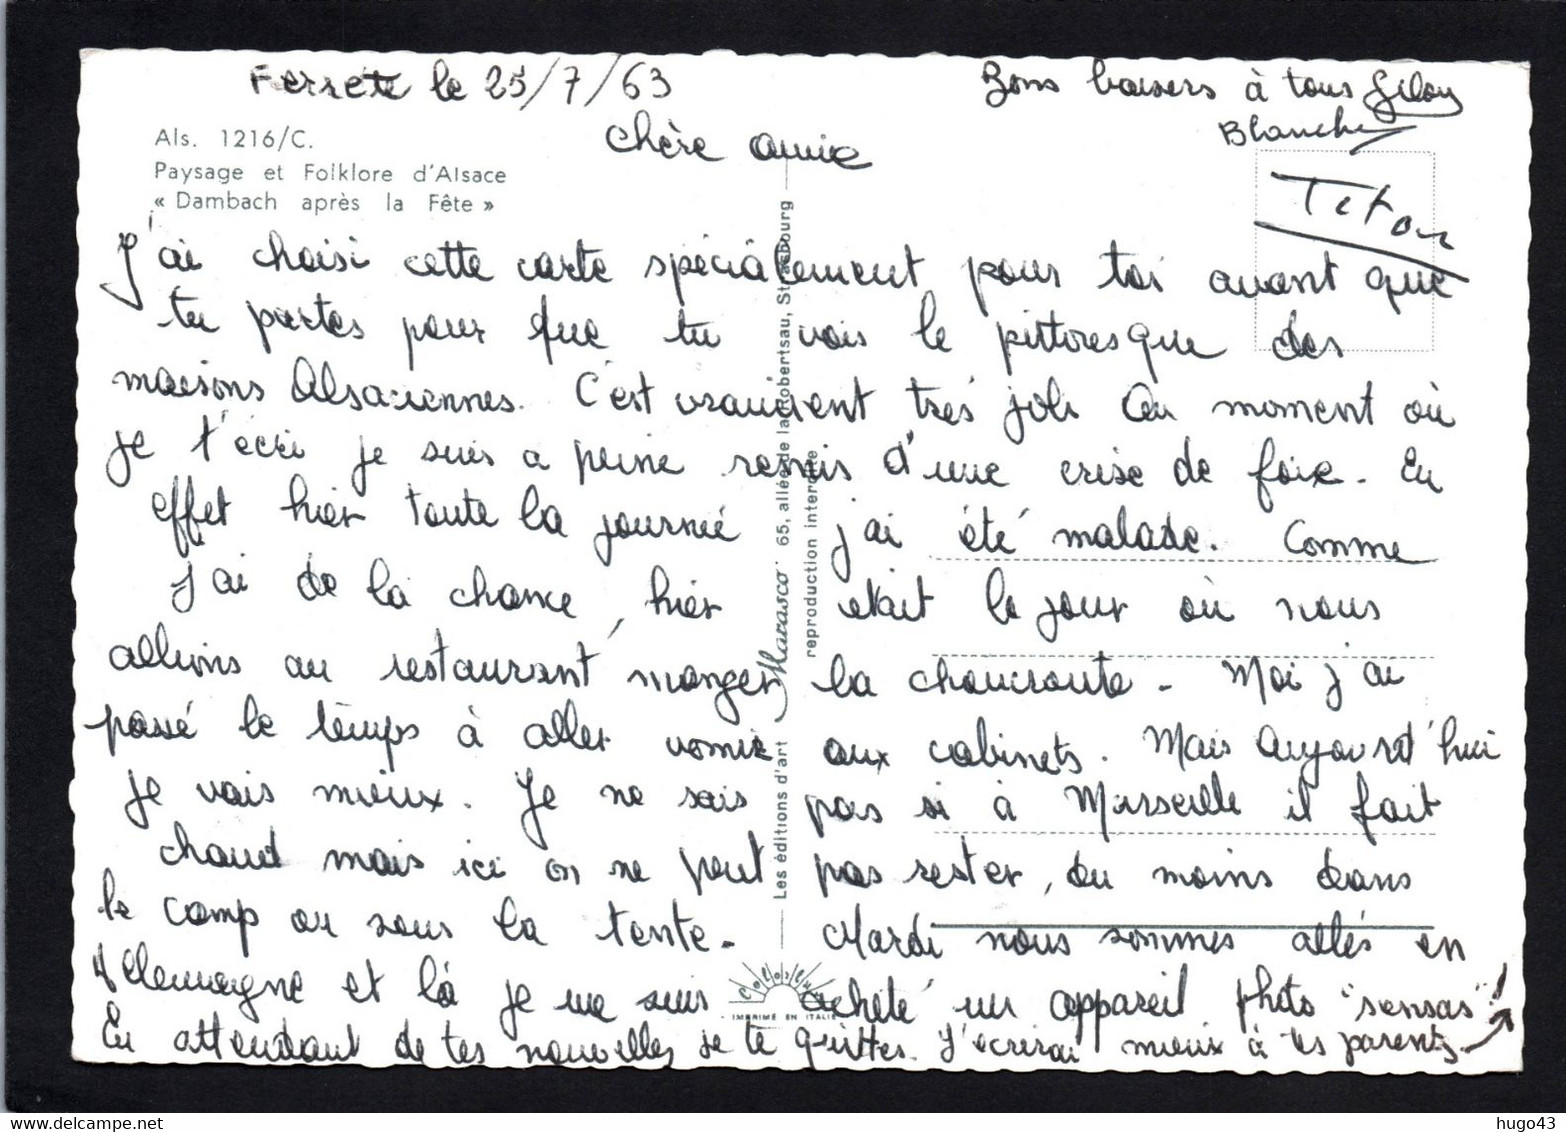 Ferrete le 25/7/63
Bons baisers à tous
Blanche
Titou
Als. 1216/C.
Paysage et Folklore d'Alsace
« Dambach après la Fête »
chère annie
J'ai choisi cette carte spécialement pour toi avant que
tu partes pour que tu vois le pittoresque des
maisons Alsaciennes. C'est vraiment très joli Au moment où
je t'écri je suis a peine remis d'une crise de foie. En
effet hier toute la journée j'ai été malade. Comme
j'ai de la chance, hier était le jour où nous
allions au restaurant manger la choucroute. Moi j'ai
passé le temps à aller vomir aux cabinets. Mais Aujourd'hui
je vais mieux. Je ne sais pas si à Marseille il fait
chaud mais ici on ne peut pas rester, du moins dans
le camp ou sous la tente. Mardi nous sommes allés en
Allemagne et là je me suis acheté un appareil photo "sensas"!
En attendant de tes nouvelles je te quitte. J'écrirai mieux à tes parents.
Les éditions d'art Marasco 65, allée de la Robertsau, Strasbourg
reproduction interdite
Colorlux
IMPRIMÉ EN ITALIE
hugo43